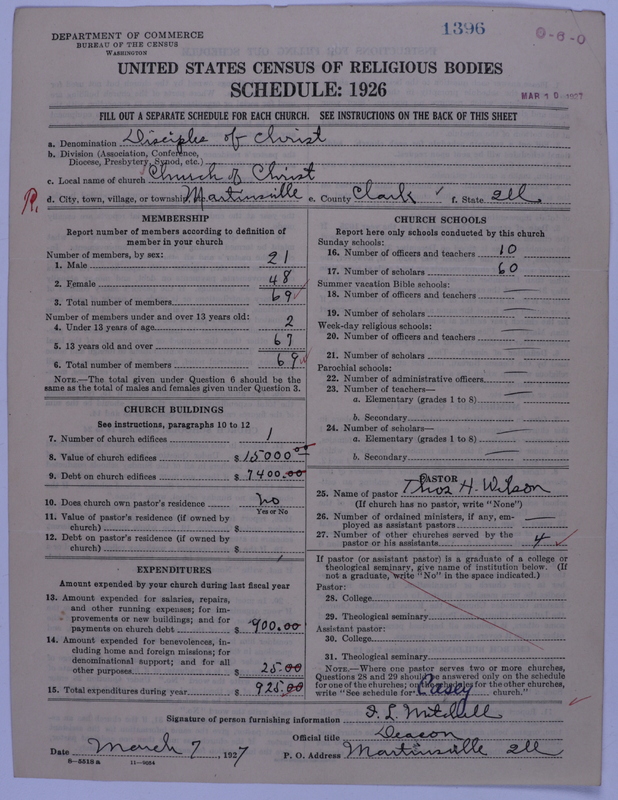 1396
0-8-0
DEPARTMENT OF COMMERCE
BUREAU OF THE CENSUS
WASHINGTON
UNITED STATES CENSUS OF RELIGIOUS BODIES
SCHEDULE: 1926
MAR 10 1927
FILL OUT A SEPARATE SCHEDULE FOR EACH CHURCH. SEE INSTRUCTIONS ON THE BACK OF THIS SHEET
a. Denomination Disciples of Christ
b. Division (Association, Conference,
Diocese, Presbytery, Synod, etc.)
c. Local name of church Church of Christ
R. d. City, town, village, or township Martinsville e. County Clark f. State Ill
MEMBERSHIP
Report number of members according to definition of
member in your church
Number of members, by sex:
1. Male 21
2. Female 48
3. Total number of members 69
Number of members under and over 13 years old:
4. Under 13 years of age 2
5. 13 years old and over 67
6. Total number of members 69
NOTE.—The total given under Question 6 should be the
same as the total of males and females given under Question 3.
CHURCH BUILDINGS
See instructions, paragraphs 10 to 12
7. Number of church edifices 1
8. Value of church edifices $ 15000 00
9. Debt on church edifices $ 7400.00
10. Does church own pastor's residence No
Yes or No
11. Value of pastor's residence (if owned by
church) $
12. Debt on pastor's residence (if owned by
church) $
EXPENDITURES
Amount expended by your church during last fiscal year
13. Amount expended for salaries, repairs,
and other running expenses; for im-
provements or new buildings; and for
payments on church debt $ 900.00
14. Amount expended for benevolences, in-
cluding home and foreign missions; for
denominational support; and for all
other purposes $ 25.00
15. Total expenditures during year $ 925.00
CHURCH SCHOOLS
Report here only schools conducted by this church
Sunday schools:
16. Number of officers and teachers 10
17. Number of scholars 60
Summer vacation Bible schools:
18. Number of officers and teachers —
19. Number of scholars —
Week-day religious schools:
20. Number of officers and teachers —
21. Number of scholars —
Parochial schools:
22. Number of administrative officers —
23. Number of teachers—
a. Elementary (grades 1 to 8) —
b. Secondary —
24. Number of scholars—
a. Elementary (grades 1 to 8) —
b. Secondary —
PASTOR
25. Name of pastor Thos H. Wilson
(If church has no pastor, write "None")
26. Number of ordained ministers, if any, em-
ployed as assistant pastors —
27. Number of other churches served by the
pastor or his assistants 4
If pastor (or assistant pastor) is a graduate of a college or
theological seminary, give name of institution below. (If
not a graduate, write "No" in the space indicated.)
Pastor:
28. College
29. Theological seminary
Assistant pastor:
30. College
31. Theological seminary
NOTE.—Where one pastor serves two or more churches,
Questions 28 and 29 should be answered only on the schedule
for one of the churches; on the schedules for the other churches,
write "See schedule for Casey church."
Signature of person furnishing information I. L. Mitchell
Official title Deacon
Date March 7, 1927 P. O. Address Martinsville Ill
8-5518 a 11-9654